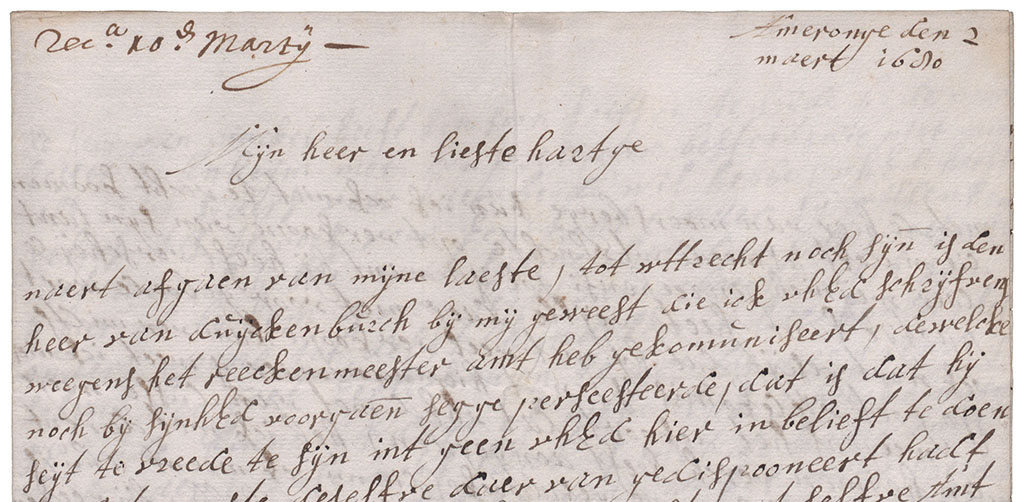 Rec.a 10.d Martÿ
Ameronge den 2
maert 1680
Mijn heer en liefste hartge
naert afgaen van mijne laeste, tot wttrecht noch sÿn is den
heer van duÿckenburch bij mij geweest die ick vhEd schrijfvens
weegens het reeckenmeester amt heb gekomuniseert, dewelcke
noch bij sijnhEd voorgaen segge perseesteerde, dat is dat hij
seijt te vreede te sijn int geen vhEd hier in belieft te doen
daer van gedisponeert hadt
amt